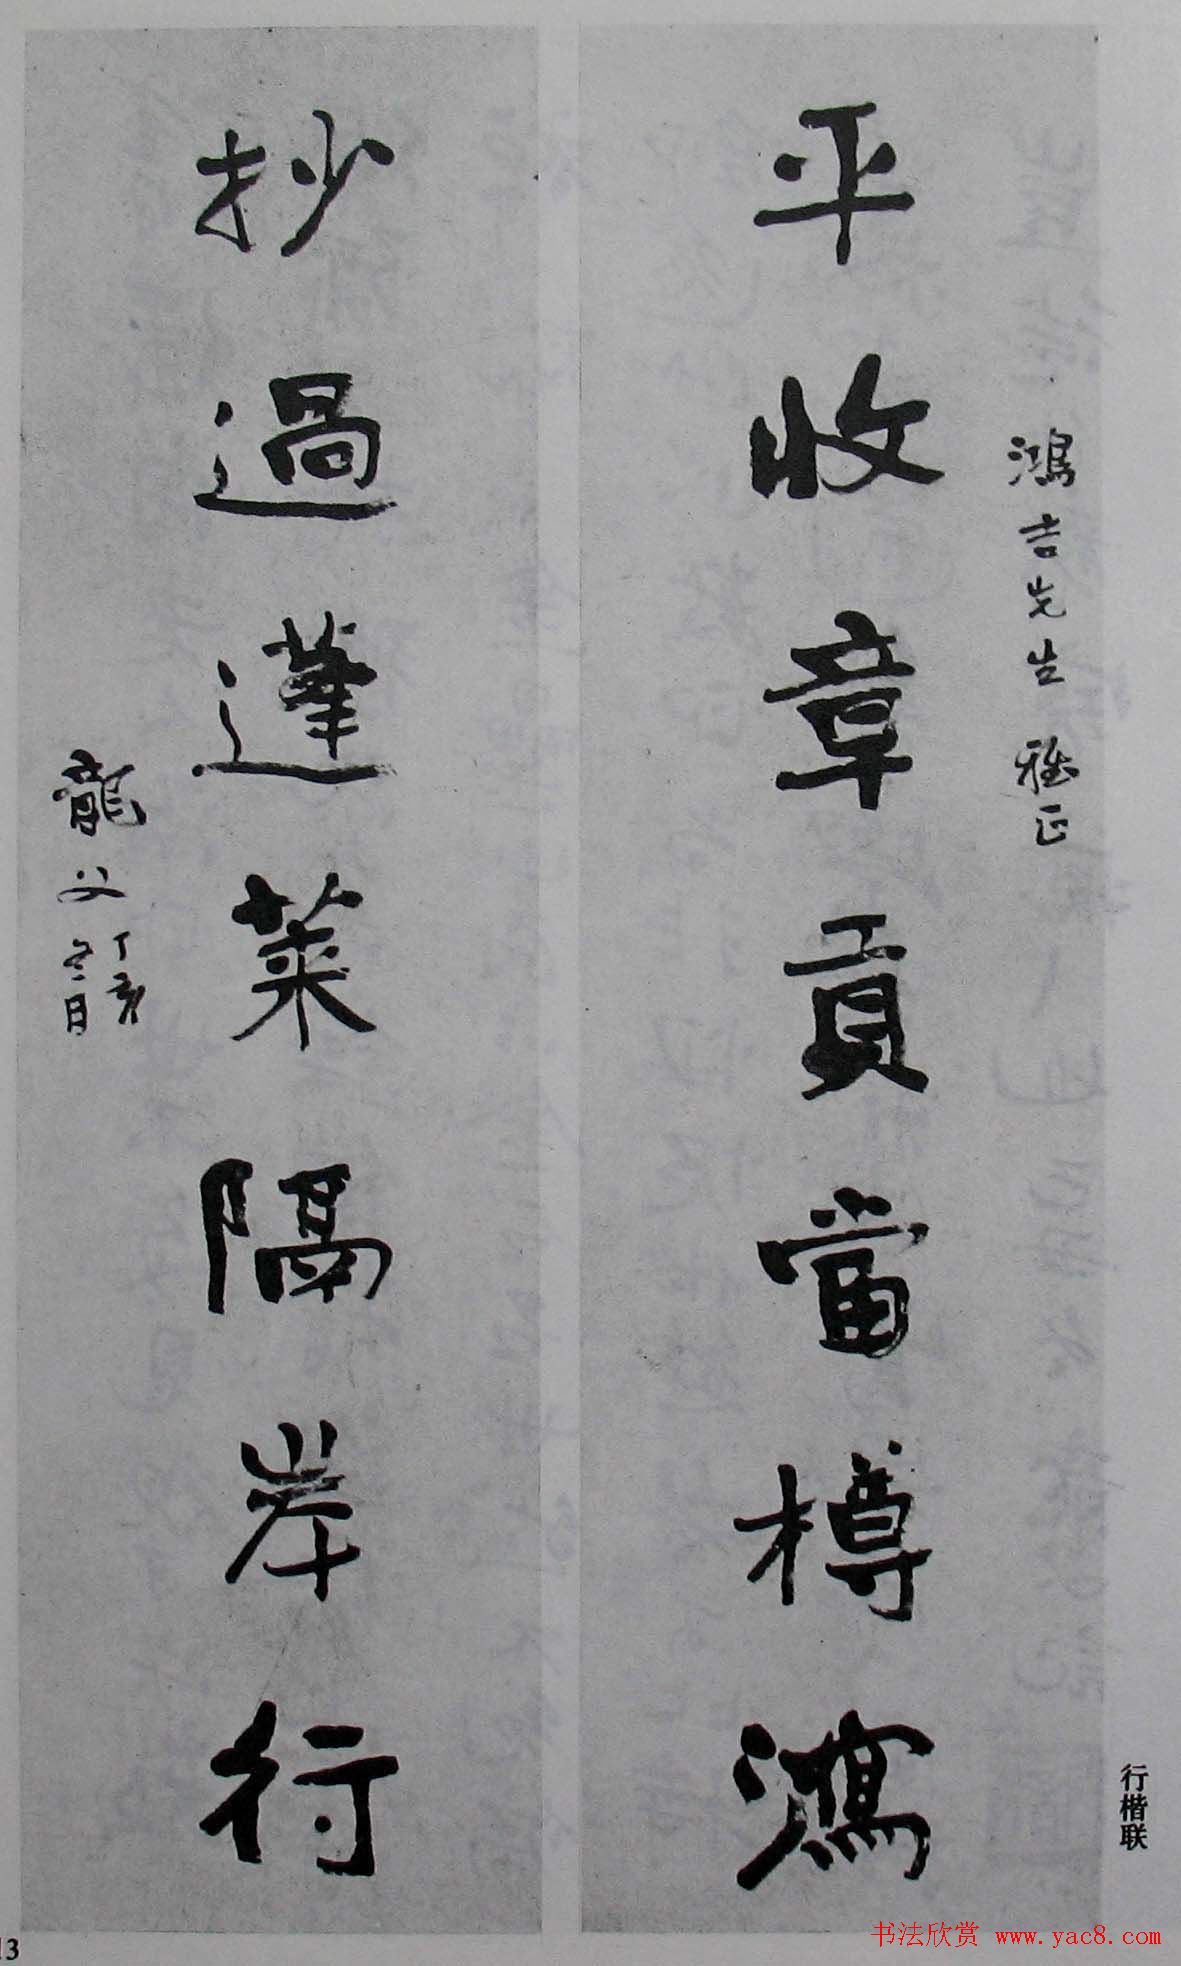 鴻吉先生 雅正
平收章貢當樽鴻
抄過蓬萊隔岸行
龍父
丁亥
冬日
行楷联
13
书法欣赏 www.yac8.com